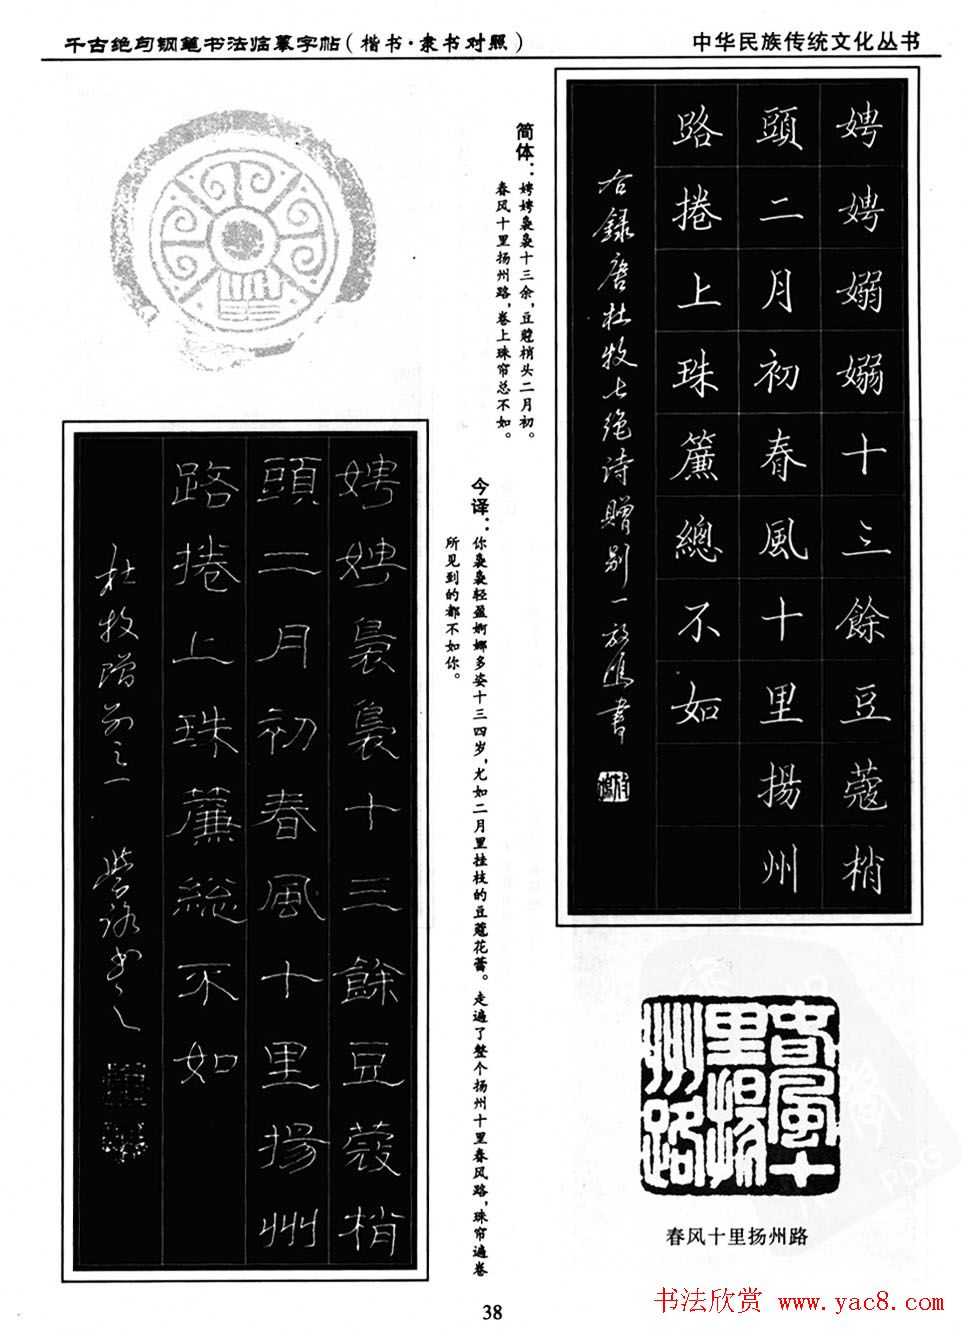 千古绝句钢笔书法临摹字帖(楷书·隶书对照)
中华民族传统文化丛书
娉娉嫋嫋十三餘豆蔻梢
頭二月初春風十里揚州
路捲上珠簾總不如
右録唐杜牧七绝诗赠别一
書
简体:娉娉袅袅十三余,豆蔻梢头二月初。
春风十里扬州路,卷上珠帘总不如。
今译:你袅袅轻盈婀娜多姿十三四岁,尤如二月里挂枝的豆蔻花蕾。走遍了整个扬州十里春风路,珠帘遍卷
所见到的都不如你。
娉娉裊裊十三餘豆蔻梢
頭二月初春風十里揚州
路捲上珠簾總不如
杜牧赠别之一
春風十
里揚
州路
春风十里扬州路
38
书法欣赏 www.yac8.com
PDG